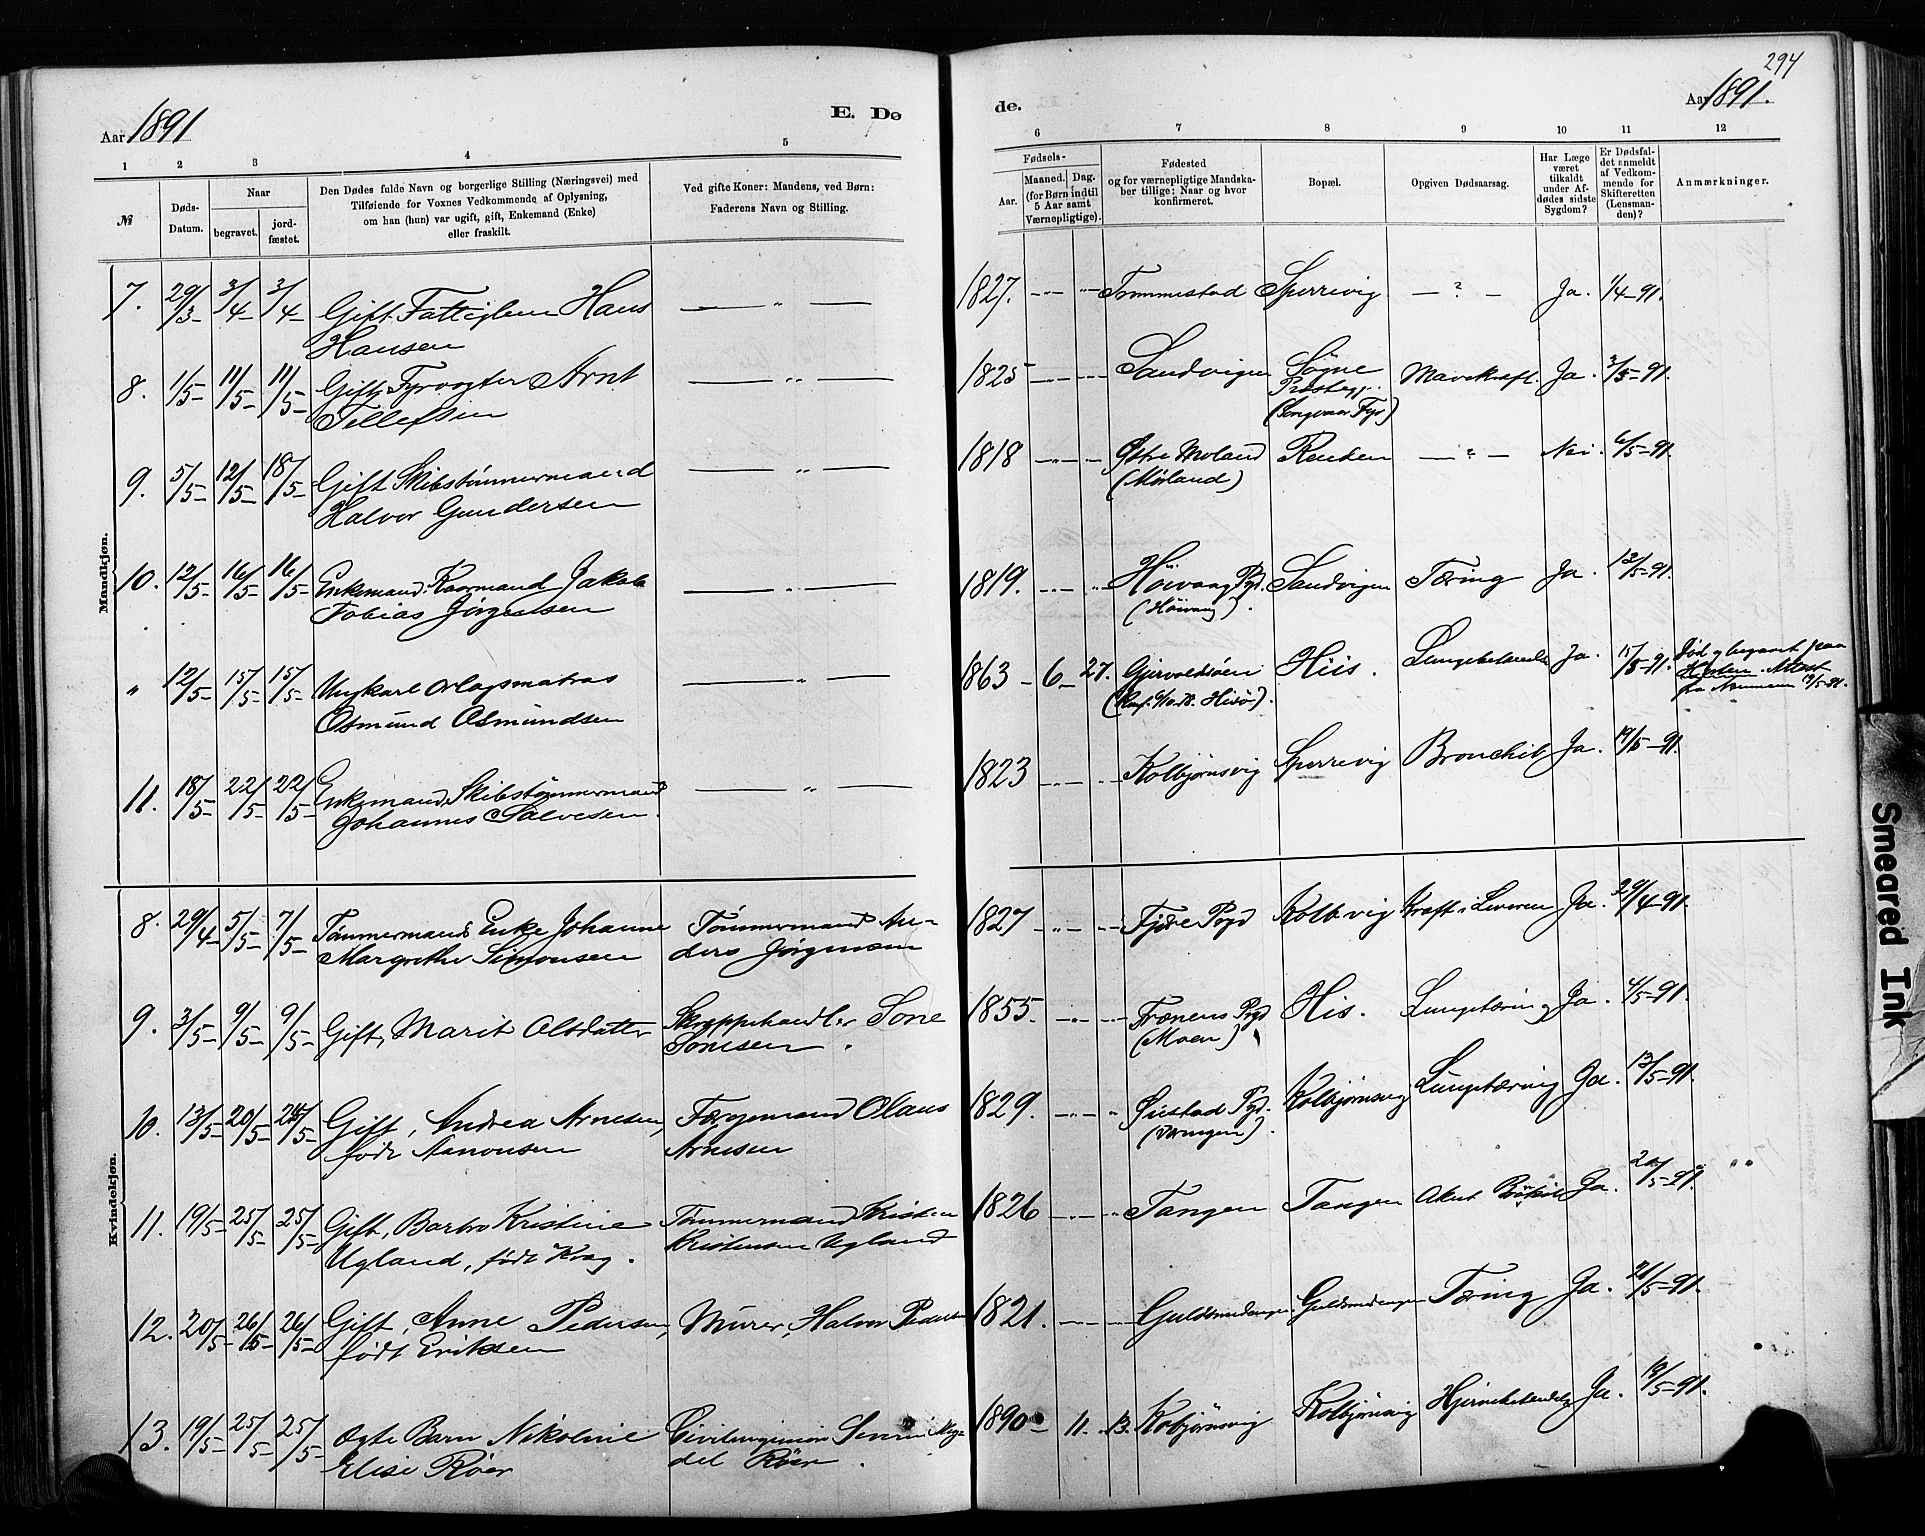 294
Aar 1891
E. Dø
de.
Aar 1891.
1 2 3 4 5
6 7 8 9 10 11 12
№
Døds-
Datum.
Naar
begravet.
jord-
fæstet.
Den Dødes fulde Navn og borgerlige Stilling (Næringsvei) med
Tilføiende for Voxnes Vedkommende af Oplysning,
om han (hun) var ugift, gift, Enkemand (Enke)
eller fraskilt.
Ved gifte Koner: Mandens, ved Børn:
Faderens Navn og Stilling.
Fødsels-
Aar.
Maaned. Dag.
(for Børn indtil
5 Aar samt
Værnepligtige).
Fødested
og for værnepligtige Mandska-
ber tillige: Naar og hvor
konfirmeret.
Bopæl.
Opgiven Dødsaarsag.
Har Læge
været
tilkaldt
under Af-
dødes sidste
Sygdom?
Er Dødsfal-
det anmeldt
af Vedkom-
mende for
Skifteretten
(Lensman-
den)?
Anmærkninger.
Mandkjøn.
7. 29/3 3/4 3/4 Gift Fattiglem Hans
Hansen
1827. Trommestad Sperrevig ? Ja. 1/4-91.
8. 1/5 11/5 11/5 Gift Fyrvogter Arnt
Tellefsen
1825 Sandvigen Søgne
Præstegj.
(Songvaar Fyr)
Mavekræft. Ja. 3/5-91.
9. 5/5 12/5 18/5 Gift Skibstømmermand
Halvor Gundersen
1818 Østre Moland
(Mørland)
Revesen ? Nei. 6/5-91.
10. 12/5 16/5 16/5 Enkemand, Kaarmand Jakob
Tobias Jørgensen
1819. Høivaag Pgd.
(Høivaag).
Sandvigen Tæring Ja. 12/5-91.
" 12/5 15/5 15/5 Ungkarl Orlogsmatros
Osmund Osmundsen
1863 6 27. Gjervoldsøen
(Konf. 6/10.78. Hisø).
Hiis. Lungebetændelse Ja. 15/5-91.
Død og begravet paa
Horten. Attest
11. 18/5 22/5 22/5 Enkemand Skibstømmermand
Johannes Salvesen.
1823 Kolbjørnsvig Sperrevig Bronchit Ja. 19/5-91.
Kvindekjøn.
8. 29/4 5/5 7/5 Tømmermands Enke Johanne
Margrethe Simonsen
Tømmermand An-
ders Jørgensen
1827 Fjære Pgd Kolb.vig Kræft i Leveren Ja. 29/4-91.
9. 3/5 9/5 9/5 Gift, Marit Olsdatter
Skræppehandler Sone
Sonesen.
1855. Fronens Pgd
(Moen)
His. Lungetæring Ja. 4/5-91.
10. 13/5 20/5 24/5 Gift, Andrea Arnesen,
født Aanonsen
Færgemand Olaus
Arnesen
1829. Øiestad Pgd.
Kolbjørnsvig Lungetæring Ja. 13/5-91.
11. 19/5 25/5 25/5 Gift, Barbro Kristine
Ugland, født Krag.
Tømmermand Kristen
Kristensen Ugland
1826 Tangen Tangen Akut Ja. 20/5-91.
12. 20/5 26/5 26/5 Gift, Anne Pedersen,
født Eriksen
Murer, Halvor Pedersen
1821. Guldsmedengen. Guldsmedengen Tæring Ja. 21/5-91.
13. 19/5 25/5 25/5 Ægte Barn Nikoline
Elise Röer
Civilingeniör Severin Mag-
del Röer.
1890 11. 13. Kolbjørnsvig Kolbjørnsvig Hjernebetændelse Ja. 19/5-91.
Smeared Ink